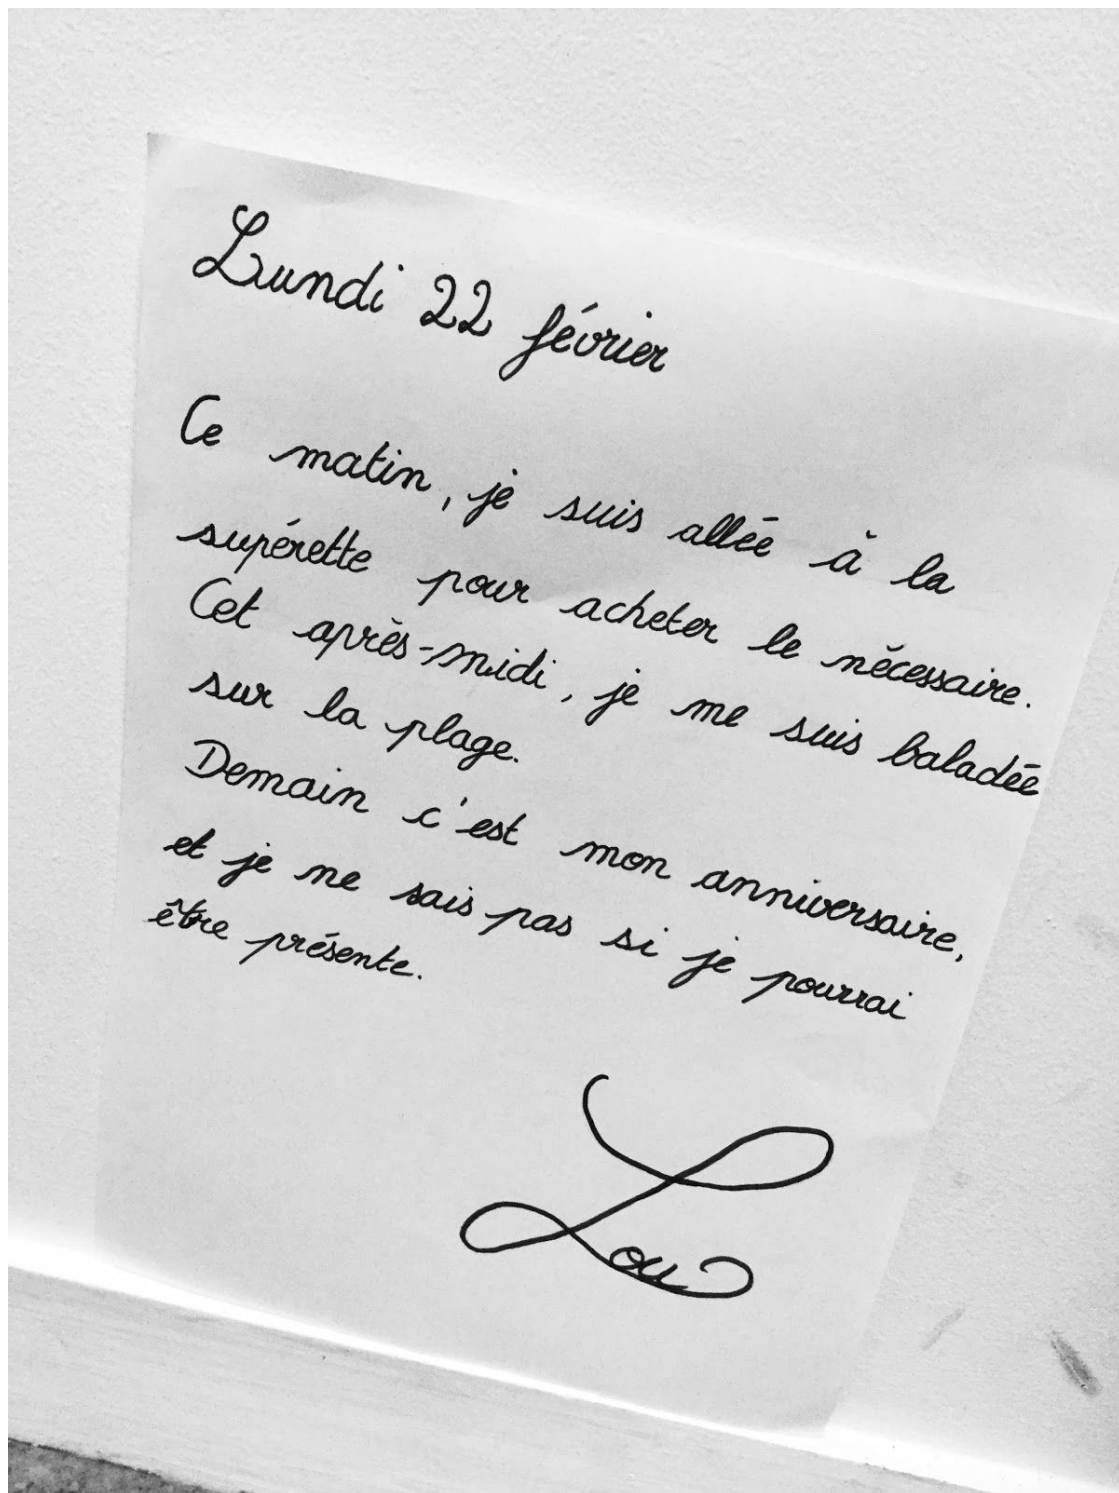 Lundi 22 février
Ce matin, je suis allée à la
supérette pour acheter le nécessaire.
Cet après-midi, je me suis baladée
sur la plage.
Demain c'est mon anniversaire,
et je ne sais pas si je pourrai
être présente.
Lou